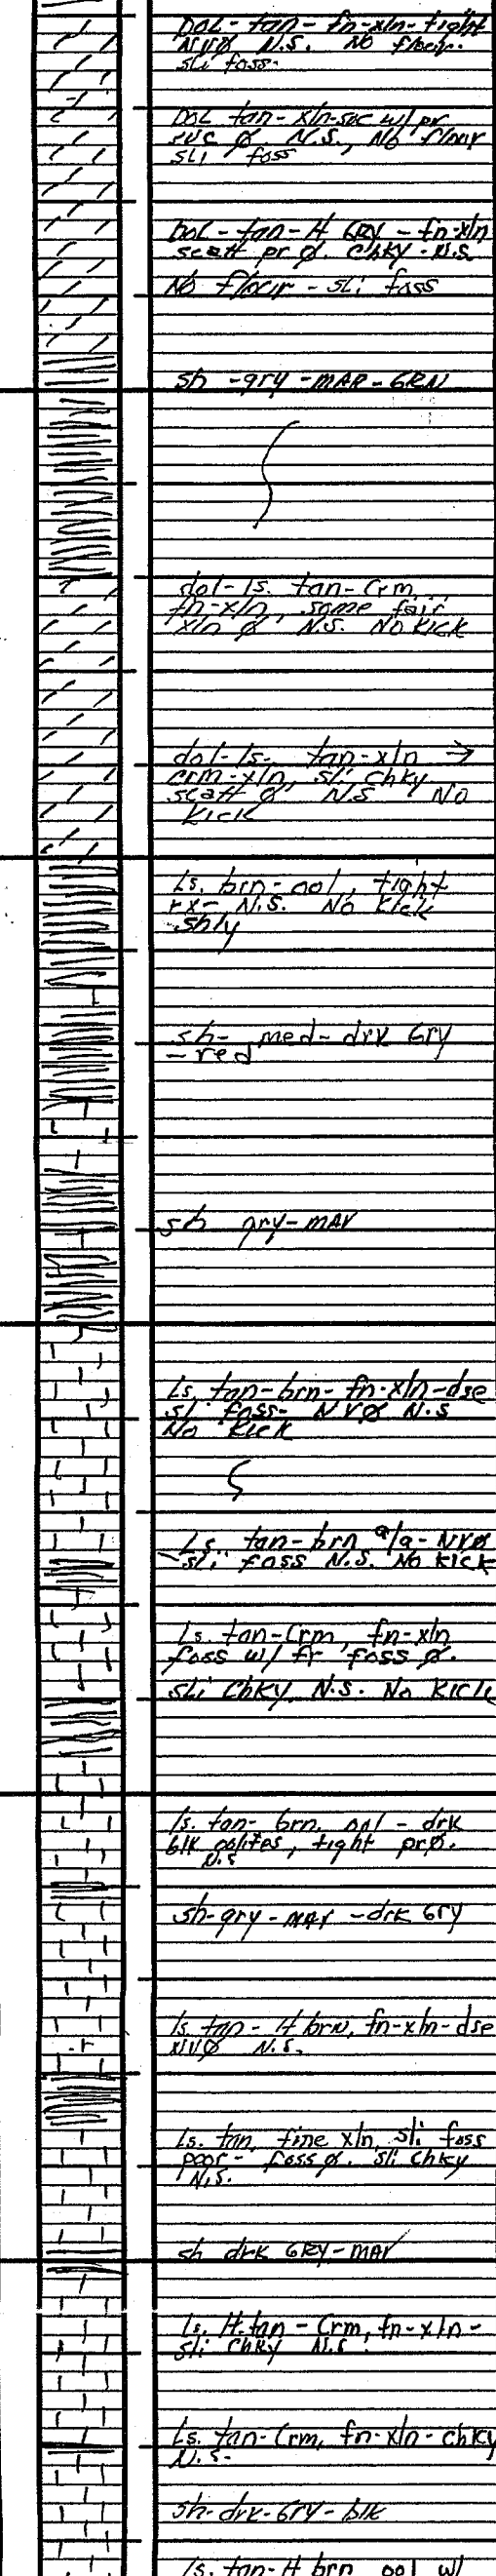 DOL - tan - fn-xln - tight
NVØ N.S. No fluor.
sli foss.
DOL tan - xln-suc w/ pr
suc Ø N.S., No fluor
sli foss
DOL - tan - lt GRY - fn-xln
scatt pr Ø. chky - N.S.
No fluor - sli foss
sh - gry - MAR - GRN
dol-ls. tan-Crm,
fn-xln, some fair
xln Ø N.S. No KICK
dol-ls- tan-xln →
crm-xln, sli chky
scatt Ø N.S NO
KICK
Ls. brn-ool, tight
rx- N.S. No Kick
shly
sh- med-drk Gry
- red
sh gry-MAR
Ls. tan-brn- fn-xln-dse
sli foss- NVØ N.S
No KICK
Ls. tan-brn a/a- NVØ
-sli foss N.S. No KICK
Ls. tan-Crm, fn-xln
foss w/ fr foss Ø.
sli ChKY. N.S. No KICK
ls. tan-brn. ool - drk
blk oolites, tight prØ.
N.S
sh-gry-MAR-drk Gry
ls. tan - lt brN. fn-xln-dse
NVØ N.S.
Ls. tan, fine xln, sli foss
poor- foss Ø. sli Chky
N.S.
sh drk GRY-MAR
Ls. lt.tan - Crm, fn-xln-
sli Chky N.S.
Ls. tan-Crm, fn-xln-chky
N.S-
sh-drk-Gry-blk
ls. tan-lt brn ool w/